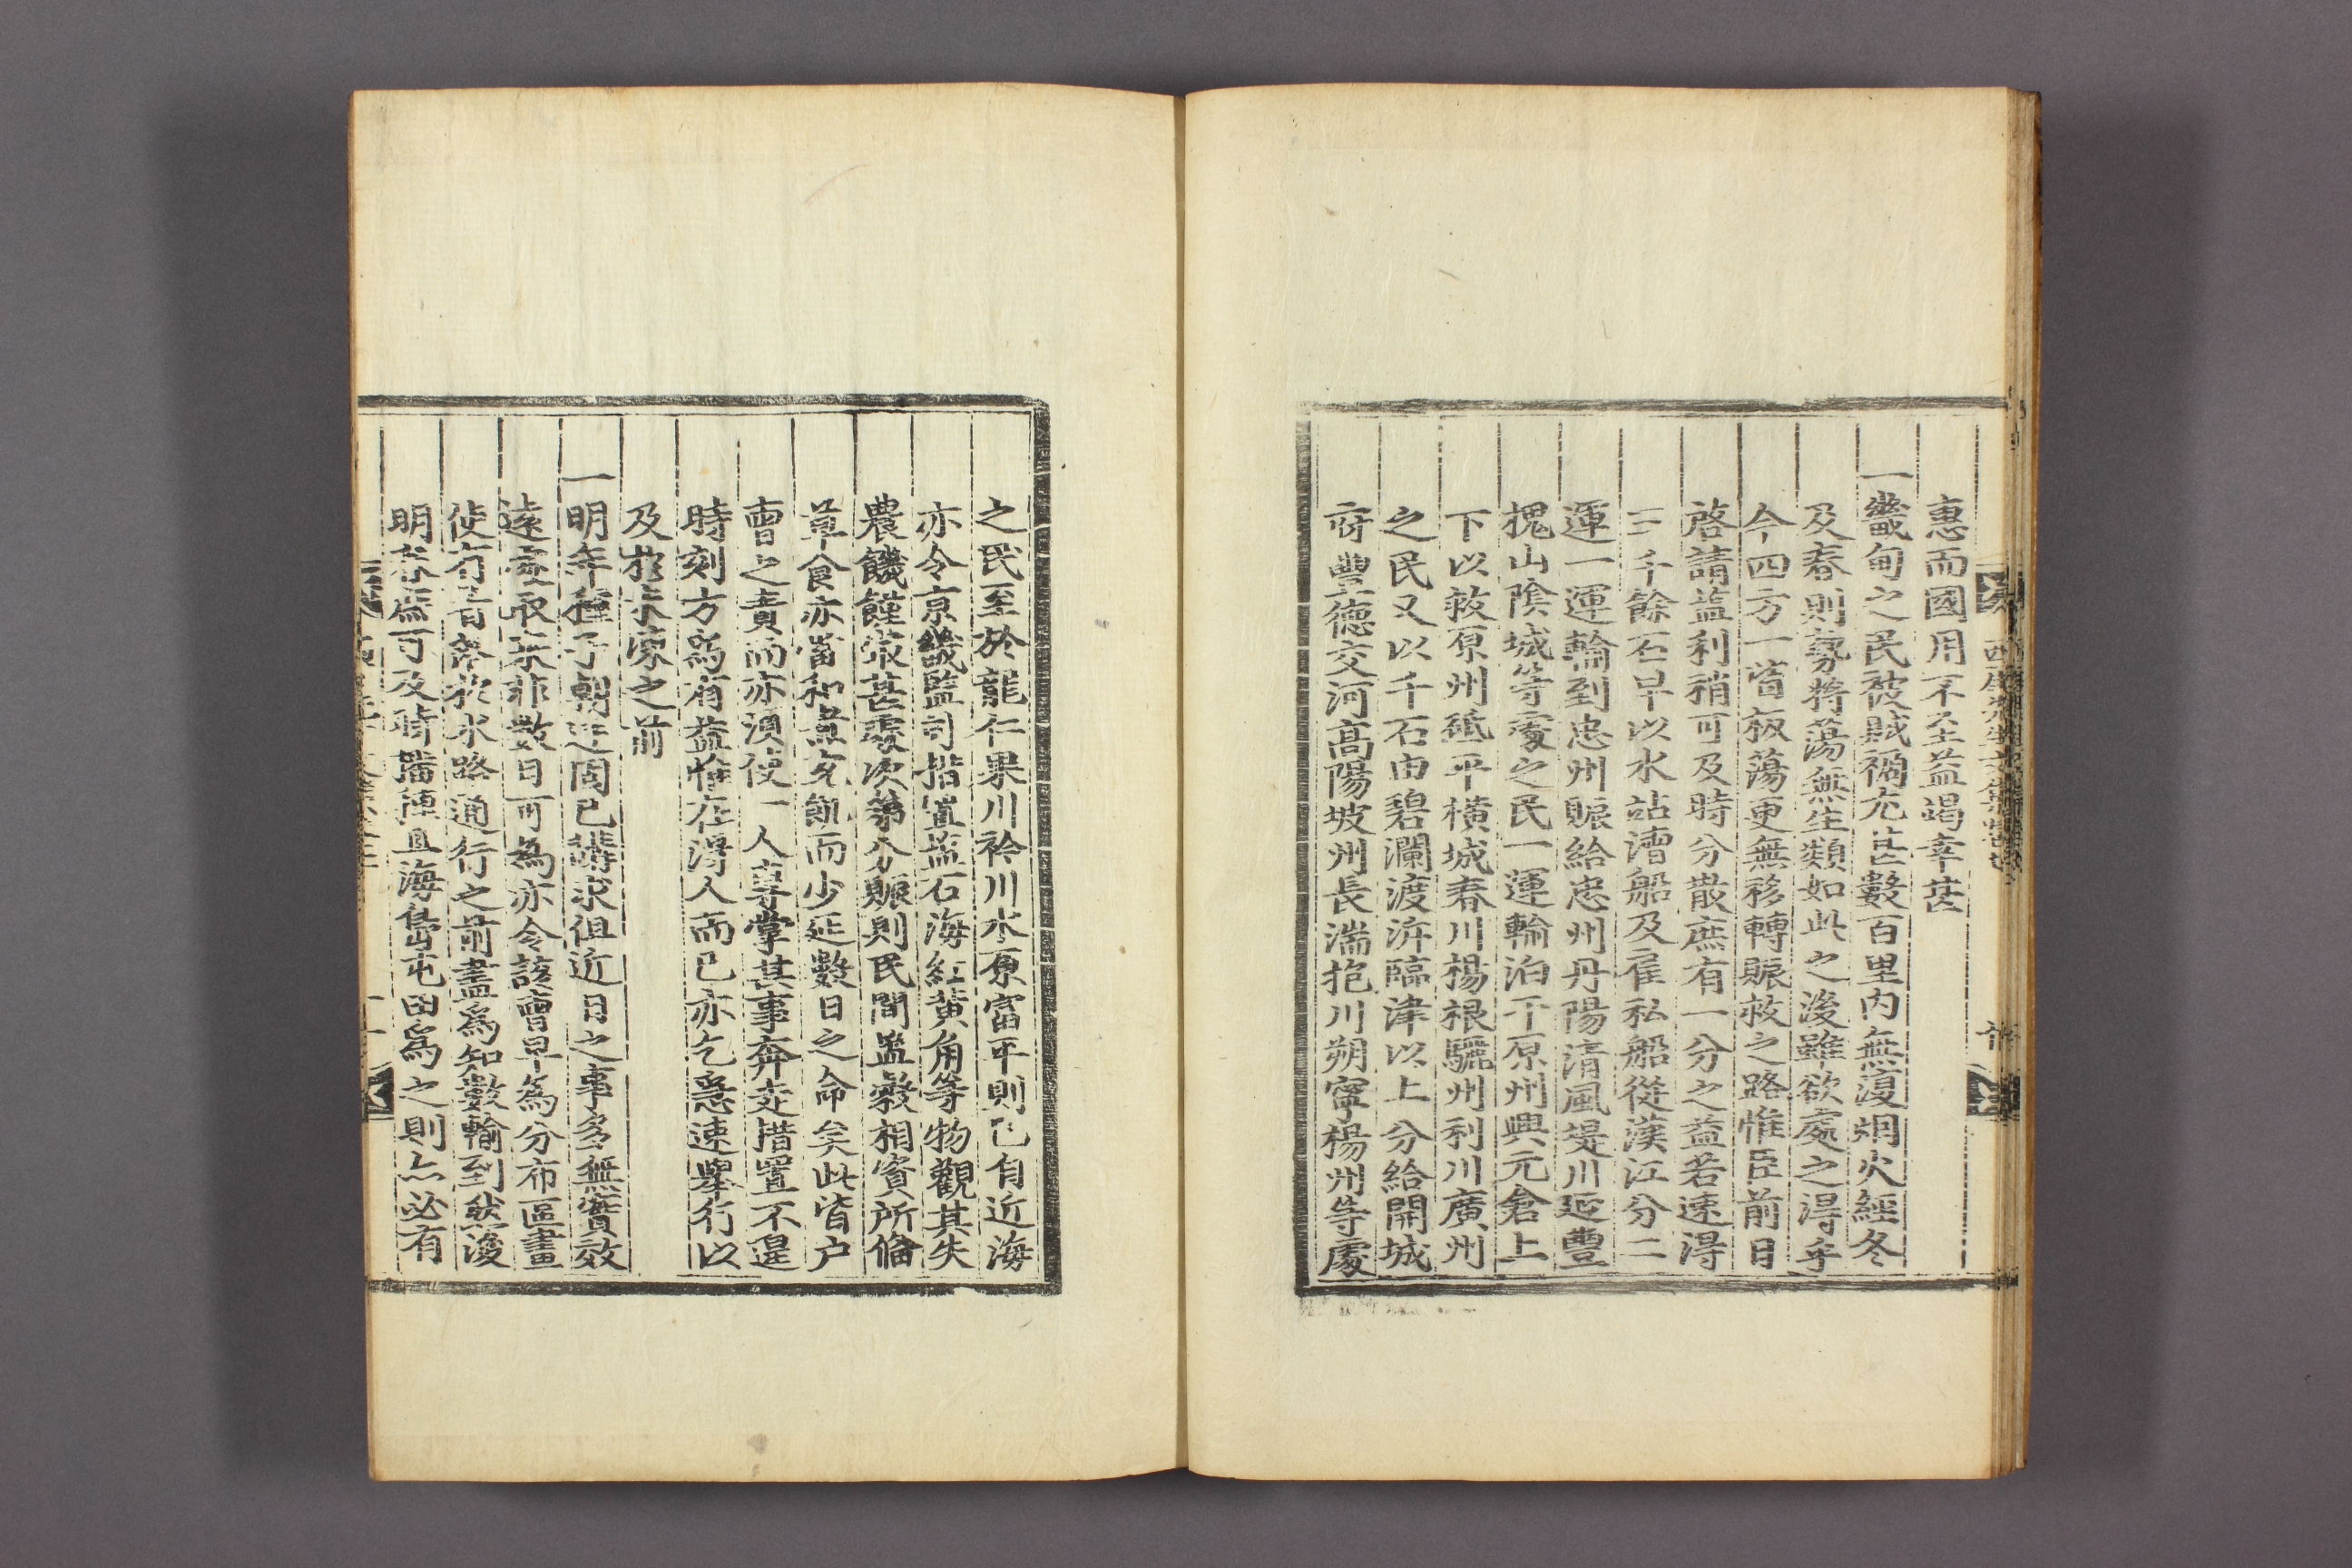 惠而國用不至益竭幸甚
一畿甸之民被賊禍尤甚數百里內無復烟火經冬
及春則勢將蕩無生類如此之後雖欲處之得乎
今四方一㨾板蕩更無移轉賑救之路惟臣前日
啓請鹽利稍可及時分散庶有一分之益若速得
三千餘石早以水站漕船及雇私船從漢江分二
運一運輸到忠州賑給忠州丹陽淸風堤川延豐
槐山陰城等處之民一運輸泊于原州興元倉上
下以救原州砥平橫城春川楊根驪州利川廣州
之民又以千石由碧瀾渡泝臨津以上分給開城
府豐德交河高陽坡州長湍抱川朔寧楊州等處
之民至於龍仁果川衿川水原富平則已自近海
亦令京畿監司措置鹽石海紅黃角等物觀其失
農饑饉最甚處次第分賑則民間鹽穀相資所備
草食亦當和煮充飢而少延數日之命矣此皆户
曹之責而亦須使一人專掌其事奔走措置不遑
時刻方爲有益惟在得人而已亦乞急速擧行以
及於未凍之前
一明年種子朝廷固已講求但近日之事多無實效
遠處取來非數日可爲亦令該曹早爲分布區畫
使有者於水路通行之前盡爲知數輸到然後
明春爲可及時播種且海島屯田爲之則亦必有